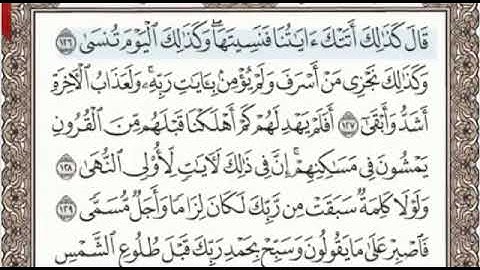 قَالَ كَذَٰلِكَ أَتَتْكَ ءَايَـٰتُنَا فَنَسِيتَهَا ۖ وَكَذَٰلِكَ ٱلْيَوْمَ تُنسَىٰ ١٢٦
وَكَذَٰلِكَ نَجْزِى مَنْ أَسْرَفَ وَلَمْ يُؤْمِنۢ بِـَٔايَـٰتِ رَبِّهِۦ ۚ وَلَعَذَابُ ٱلْـَٔاخِرَةِ
أَشَدُّ وَأَبْقَىٰٓ ١٢٧ أَفَلَمْ يَهْدِ لَهُمْ كَمْ أَهْلَكْنَا قَبْلَهُم مِّنَ ٱلْقُرُونِ
يَمْشُونَ فِى مَسَـٰكِنِهِمْ ۗ إِنَّ فِى ذَٰلِكَ لَـَٔايَـٰتٍ لِّأُو۟لِى ٱلنُّهَىٰ ١٢٨
وَلَوْلَا كَلِمَةٌ سَبَقَتْ مِن رَّبِّكَ لَكَانَ لِزَامًا وَأَجَلٌ مُّسَمًّى ١٢٩
فَٱصْبِرْ عَلَىٰ مَا يَقُولُونَ وَسَبِّحْ بِحَمْدِ رَبِّكَ قَبْلَ طُلُوعِ ٱلشَّمْسِ